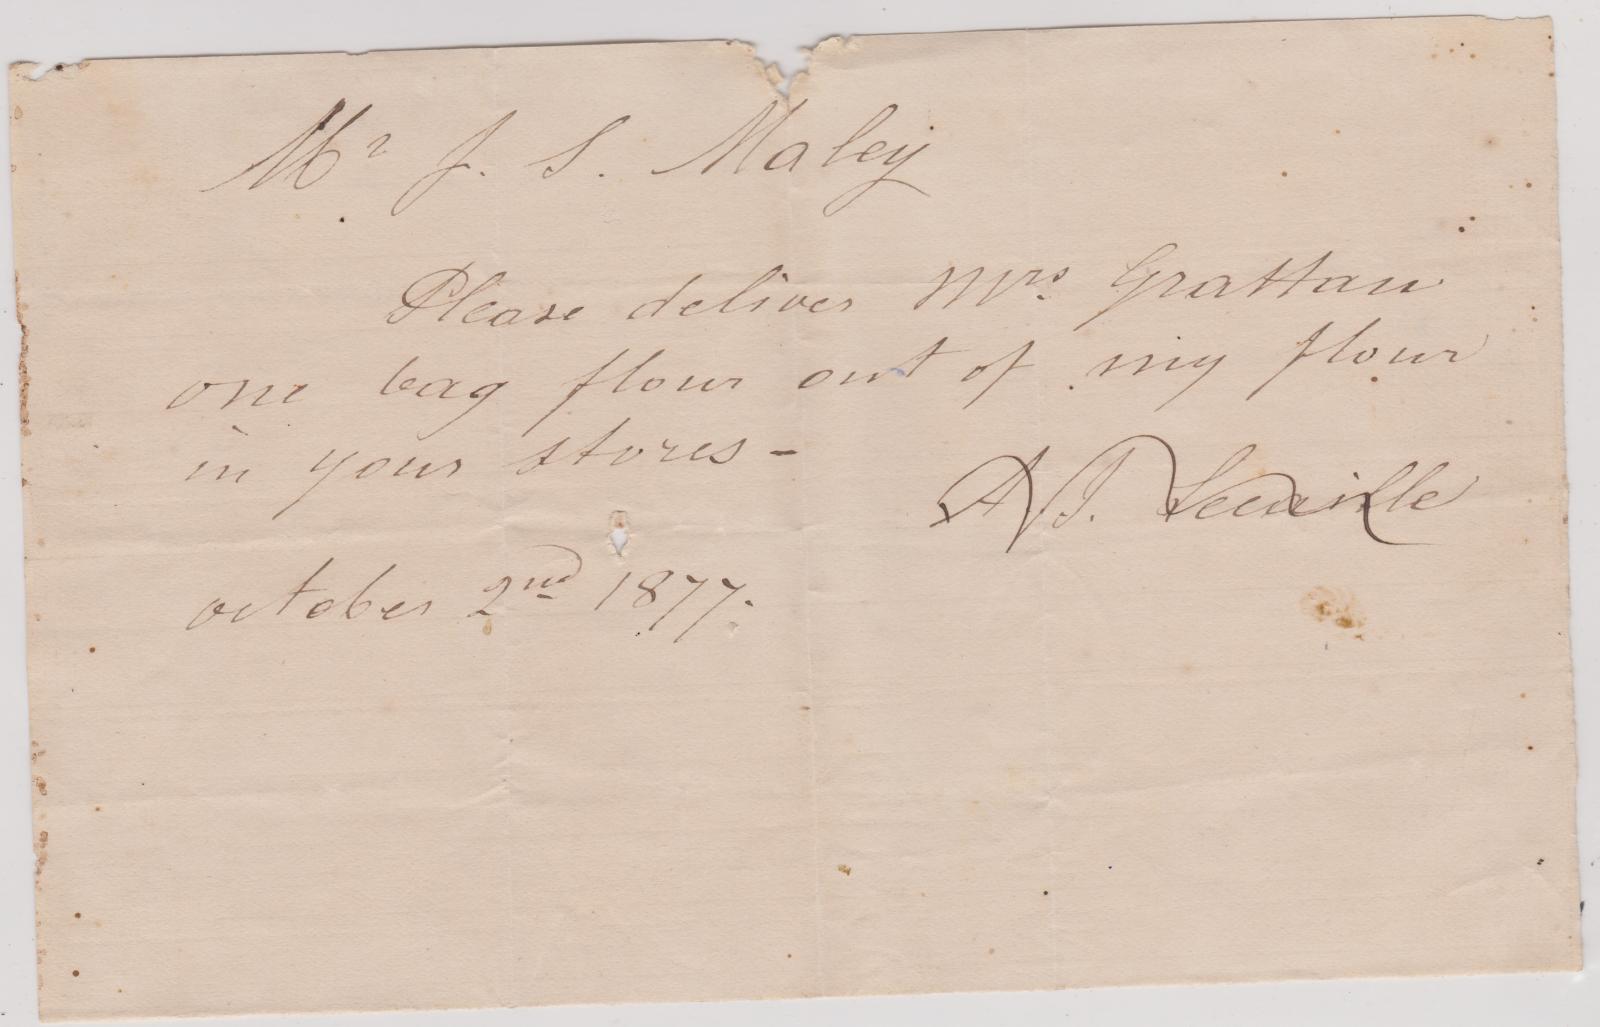 Mr J. S. Maley
Please deliver Mrs. Grattan
one bag flour out of my flour
in your stores -
A J. Lecaille
october 2nd 1877.